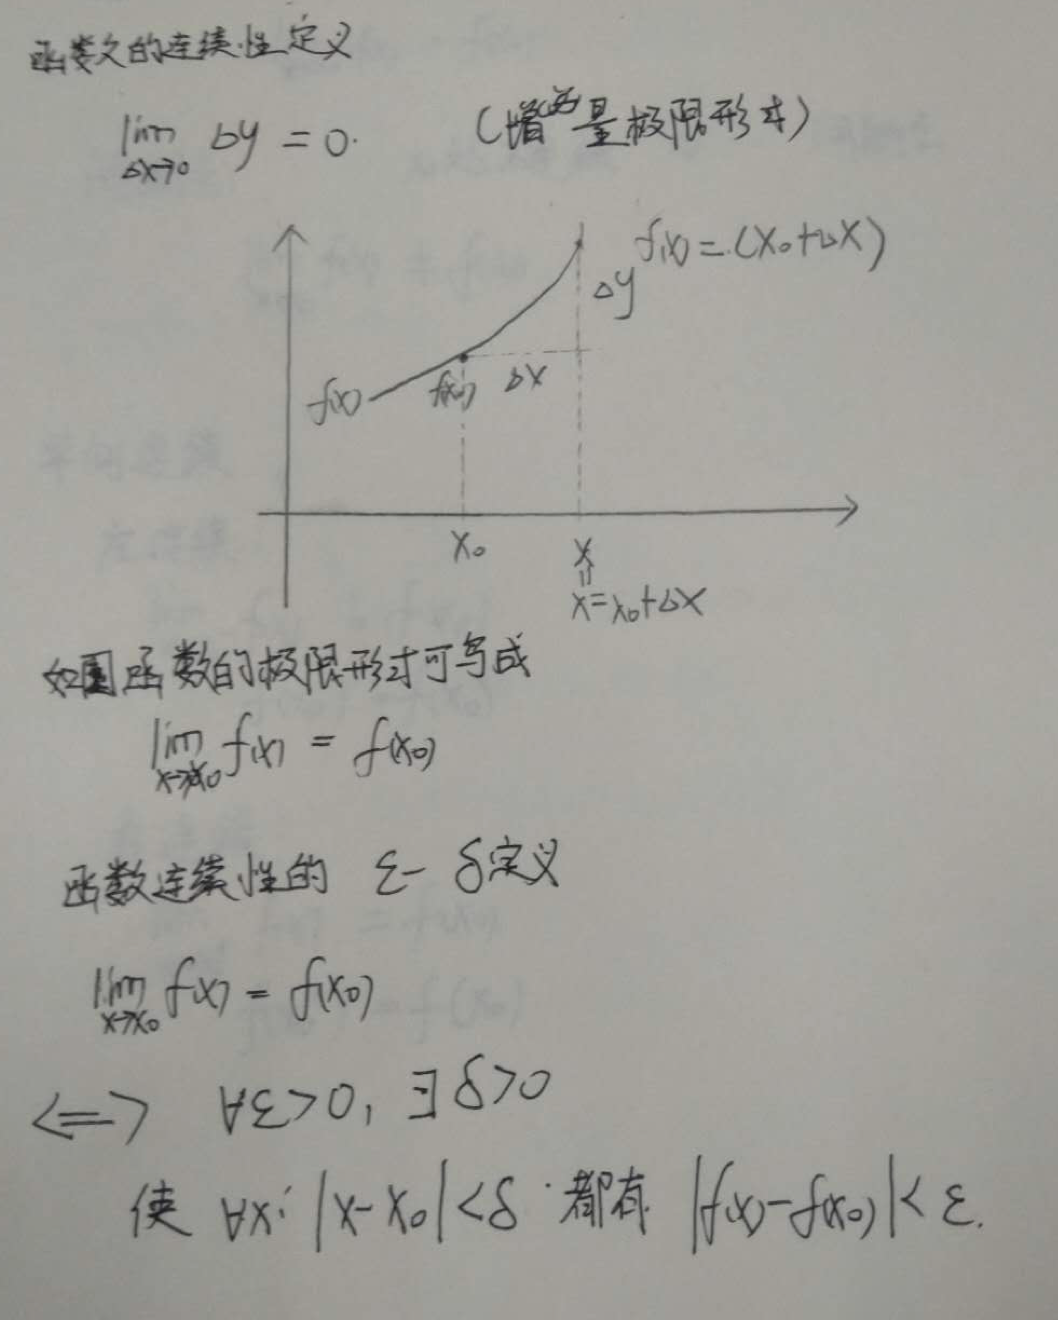 函数的连续性定义
lim Δy = 0.
Δx→0
(增量极限形式)
f(x) = (x₀+Δx)
Δy
f(x)
f(x₀)
Δx
x₀
x
=
x=x₀+Δx
如图函数的极限形式可写成
lim f(x) = f(x₀)
x→x₀
函数连续性的 ε-δ定义
lim f(x) = f(x₀)
x→x₀
<=> ∀ε>0, ∃δ>0
使 ∀x: |x-x₀|<δ 都有 |f(x)-f(x₀)|< ε.